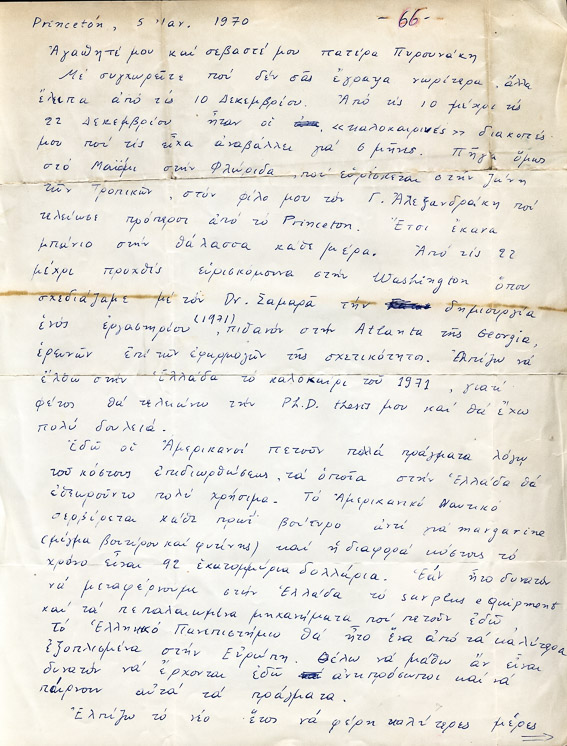 Princeton, 5 Ιαν. 1970
- 66 -
Ἀγαπητέ μου καί σεβαστέ μου πατέρα Πυρουνάκη
Μέ συγχωρεῖτε πού δέν σᾶς ἔγραψα νωρίτερα, ἀλλά
ἔλειπα ἀπό τίς 10 Δεκεμβρίου. Ἀπό τίς 10 μέχρι τίς
22 Δεκεμβρίου ἦταν οἱ «καλοκαιρινές» διακοπές
μου πού τίς εἶχα ἀναβάλλει γιά 6 μῆνες. Πῆγα ὅμως
στό Μαϊάμι στήν Φλώριδα, πού εὑρίσκεται στήν ζώνη
τῶν Τροπικῶν, στόν φίλο μου τόν Γ. Ἀλεξανδράκη πού
τελείωσε πρόπερσι ἀπό τό Princeton. Ἔτσι ἔκανα
μπάνιο στήν θάλασσα κάθε μέρα. Ἀπό τίς 22
μέχρι προχθές εὑρισκόμουνα στήν Washington ὅπου
σχεδιάζαμε μέ τόν Dr. Σαμαρᾶ τήν δημιουργία
ἑνός ἐργαστηρίου (1971) πιθανόν στήν Atlanta τῆς Georgia,
ἐρευνῶν ἐπί τῶν ἐφαρμογῶν τῆς σχετικότητος. Ἐλπίζω νά
ἔλθω στήν Ἑλλάδα τό καλοκαίρι τοῦ 1971, γιατί
φέτος θά τελειώνω τήν Ph.D. thesis μου καί θά ἔχω
πολύ δουλειά.
Ἐδῶ οἱ Ἀμερικανοί πετοῦν πολλά πράγματα λόγῳ
τοῦ κόστους ἐπιδιορθώσεως, τά ὁποῖα στήν Ἑλλάδα θά
ἐθεωροῦντο πολύ χρήσιμα. Τό Ἀμερικανικό Ναυτικό
σερβίρεται κάθε πρωΐ βούτυρο ἀντί γιά margarine
(μίγμα βουτύρου καί φυτίνης) καί ἡ διαφορά κόστους τό
χρόνο εἶναι 92 ἑκατομμύρια δολλάρια. Ἐάν ἦτο δυνατόν
νά μεταφέρνουμε στήν Ἑλλάδα τό surplus equipment
καί τά πεπαλαιωμένα μηχανήματα πού πετοῦν ἐδῶ
τό Ἑλληνικό Πανεπιστήμιο θά ἦτο ἕνα ἀπό τά καλύτερα
ἐξοπλισμένα στήν Εὐρώπη. Θέλω νά μάθω ἄν εἶναι
δυνατόν νά ἔρχονται ἐδῶ ἀντιπρόσωποι καί νά
παίρνουν αὐτά τά πράγματα.
Ἐλπίζω τό νέο ἔτος νά φέρη καλύτερες μέρες